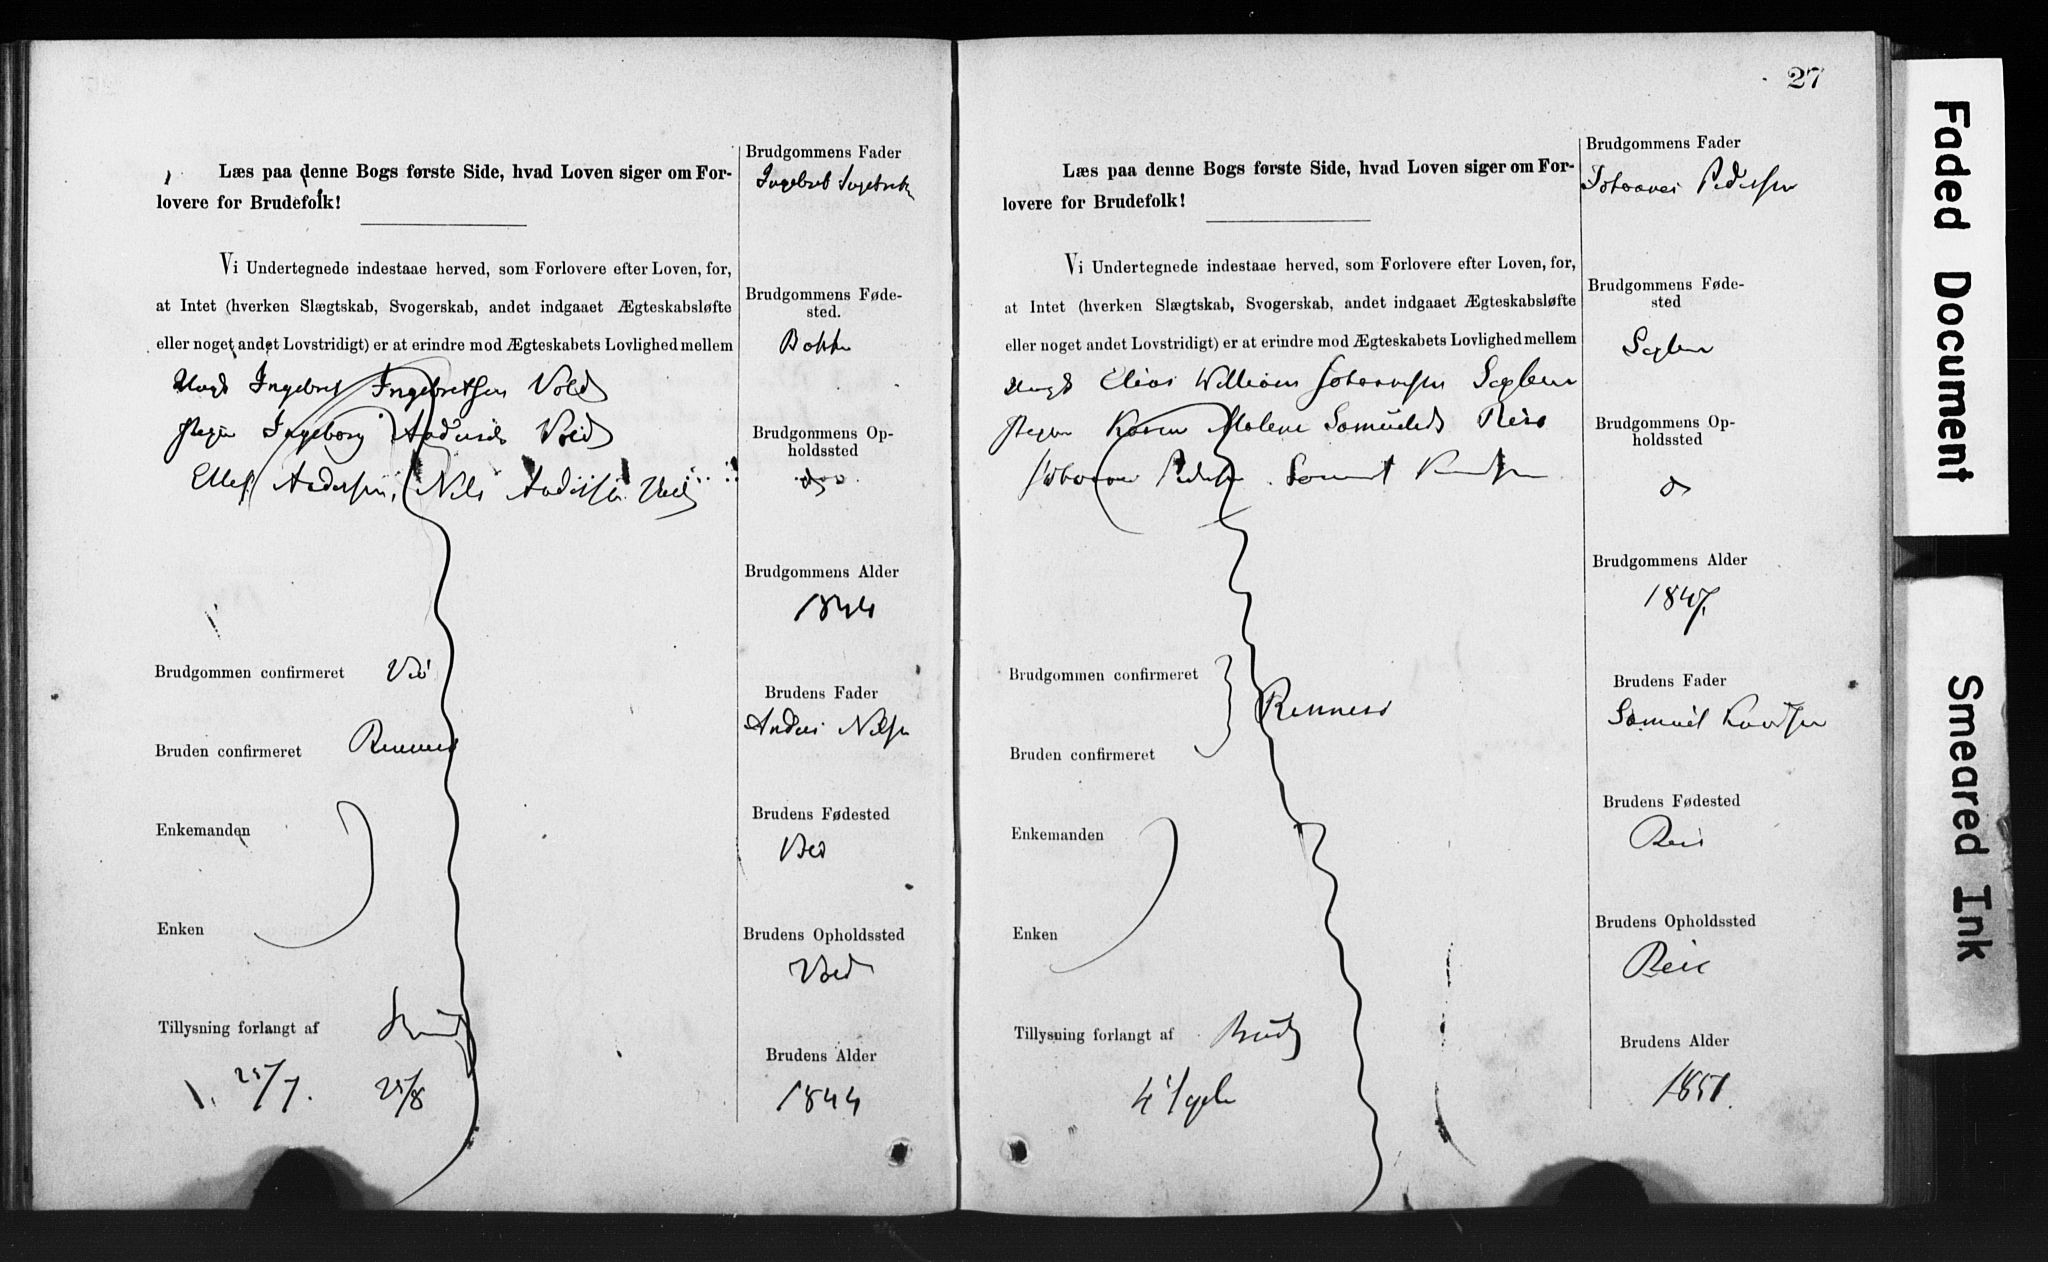 Læs paa denne Bogs første Side, hvad Loven siger om For-
lovere for Brudefolk!
Vi Undertegnede indestaae herved, som Forlovere efter Loven, for,
at Intet (hverken Slægtskab, Svogerskab, andet indgaaet Ægteskabsløfte
eller noget andet Lovstridigt) er at erindre mod Ægteskabets Lovlighed mellem
Ungk Ingebret Ingebretsen Vold
Pigen Ingeborg Andersd
Ellef Andersen, Nils Andersen
Brudgommen confirmeret
Bruden confirmeret Rennesø
Enkemanden
Enken
Tillysning forlangt af Brud
25/7. 25/8
Brudgommens Fader
Ingebret Ingebrets
Brudgommens Føde-
sted.
Bokn
Brudgommens Op-
holdssted
do
Brudgommens Alder
1844
Brudens Fader
Anders Nilsen
Brudens Fødested
Brudens Opholdssted
Brudens Alder
1844
27
Læs paa denne Bogs første Side, hvad Loven siger om For-
lovere for Brudefolk!
Vi Undertegnede indestaae herved, som Forlovere efter Loven, for,
at Intet (hverken Slægtskab, Svogerskab, andet indgaaet Ægteskabsløfte
eller noget andet Lovstridigt) er at erindre mod Ægteskabets Lovlighed mellem
Ungk Elias William Johannesen
Pigen Karen Malene Samuelsd
Johannes Pedersen. Samuel Knudsen
Brudgommen confirmeret
Rennesø
Bruden confirmeret
Enkemanden
Enken
Tillysning forlangt af Brudg
Brudgommens Fader
Johannes Pedersen
Brudgommens Føde-
sted
Brudgommens Op-
holdssted
do
Brudgommens Alder
1847.
Brudens Fader
Samuel Knudsen
Brudens Fødested
Brudens Opholdssted
Brudens Alder
1851.
Faded Document
Smeared Ink